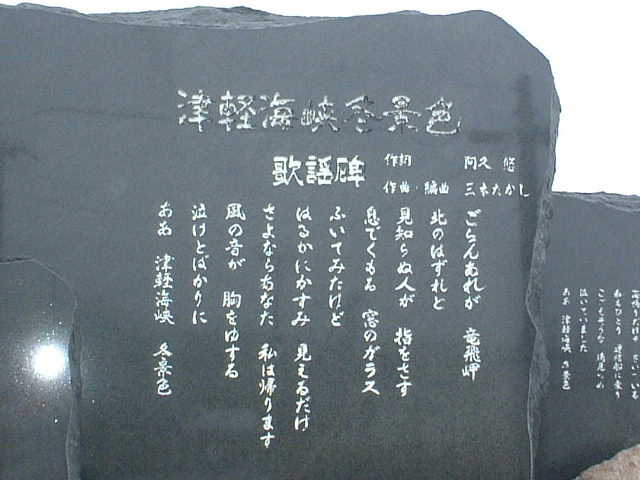 津軽海峡冬景色
歌謡碑
作詞 阿久 悠
作曲・編曲 三木たかし
ごらんあれが 竜飛岬
北のはずれと
見知らぬ人が 指をさす
息でくもる 窓のガラス
ふいてみたけど
はるかにかすみ 見えるだけ
さよならあなた 私は帰ります
風の音が 胸をゆする
泣けとばかりに
ああ 津軽海峡 冬景色
こごえそうな 鴎見つめ
泣いていました
ああ 津軽海峡 冬景色